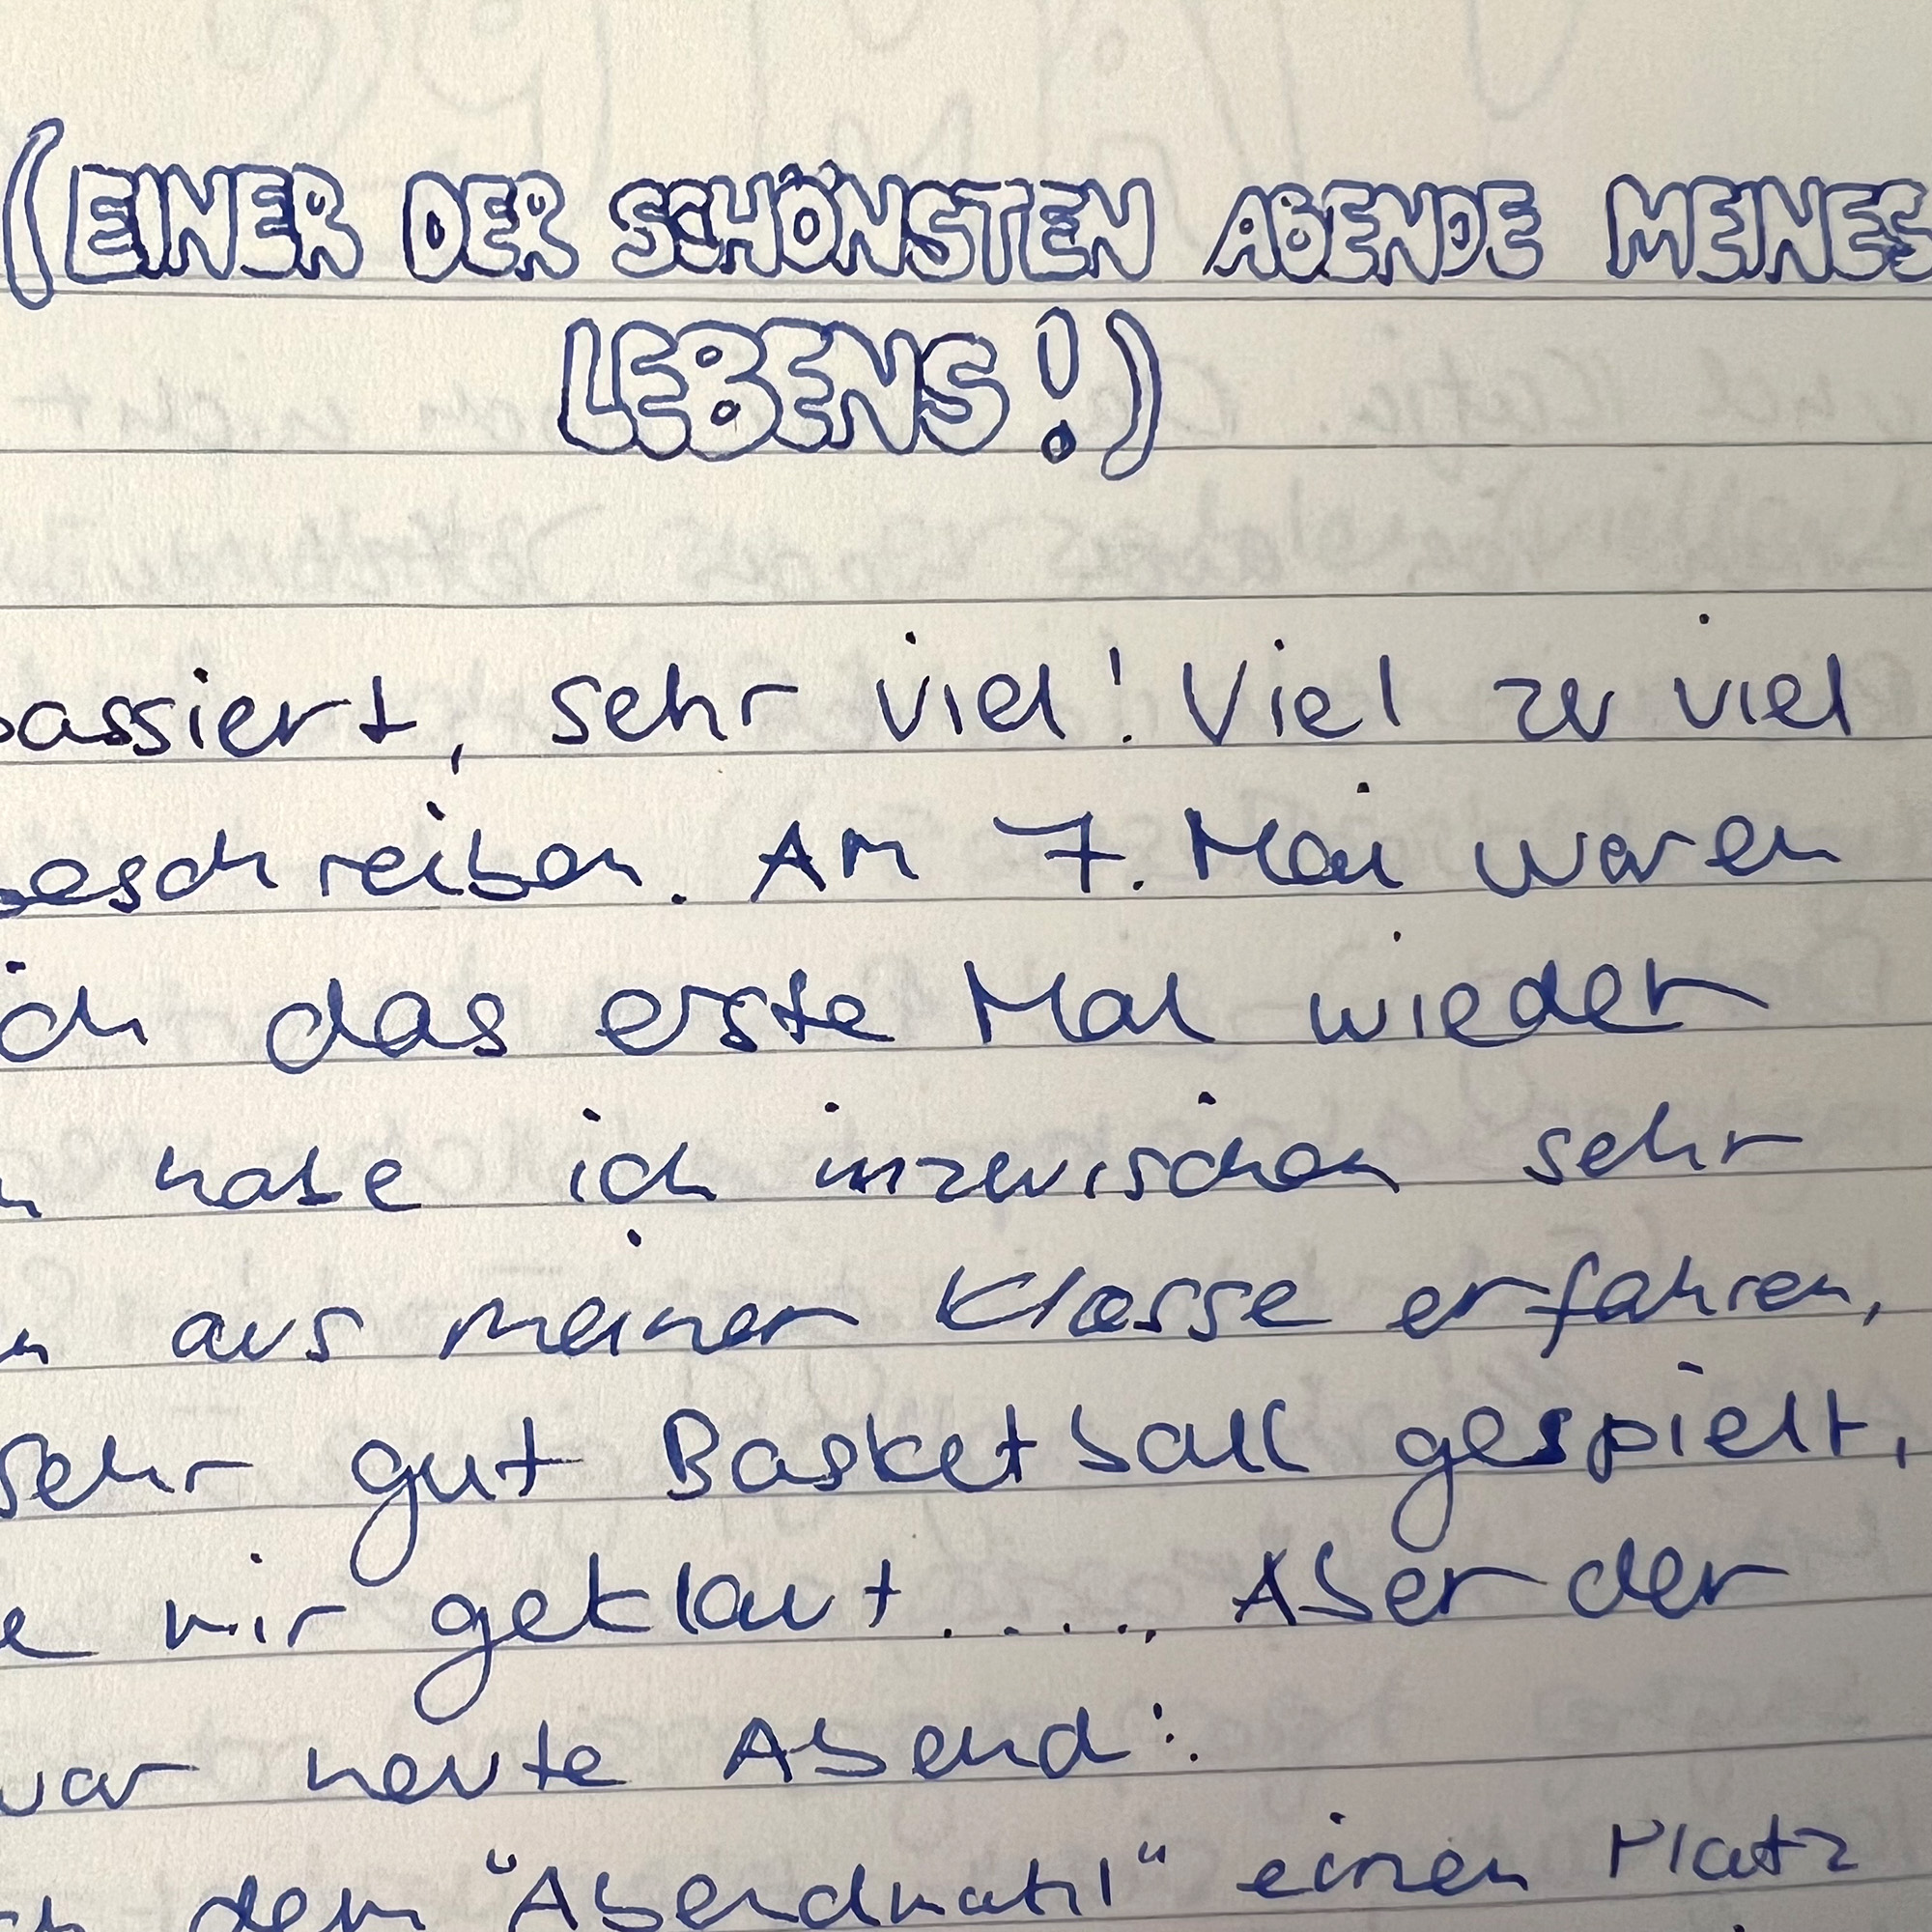 (EINER DER SCHÖNSTEN ABENDE MEINES
LEBENS!)
passiert, sehr viel! Viel zu viel
beschreiben. Am 7. Mai waren
ich das erste Mal wieder
habe ich inzwischen sehr
aus meiner Klasse erfahren,
sehr gut Basketball gespielt,
mir geklaut..... Aber der
war heute Abend:
dem "Abendmahl" einen Platz